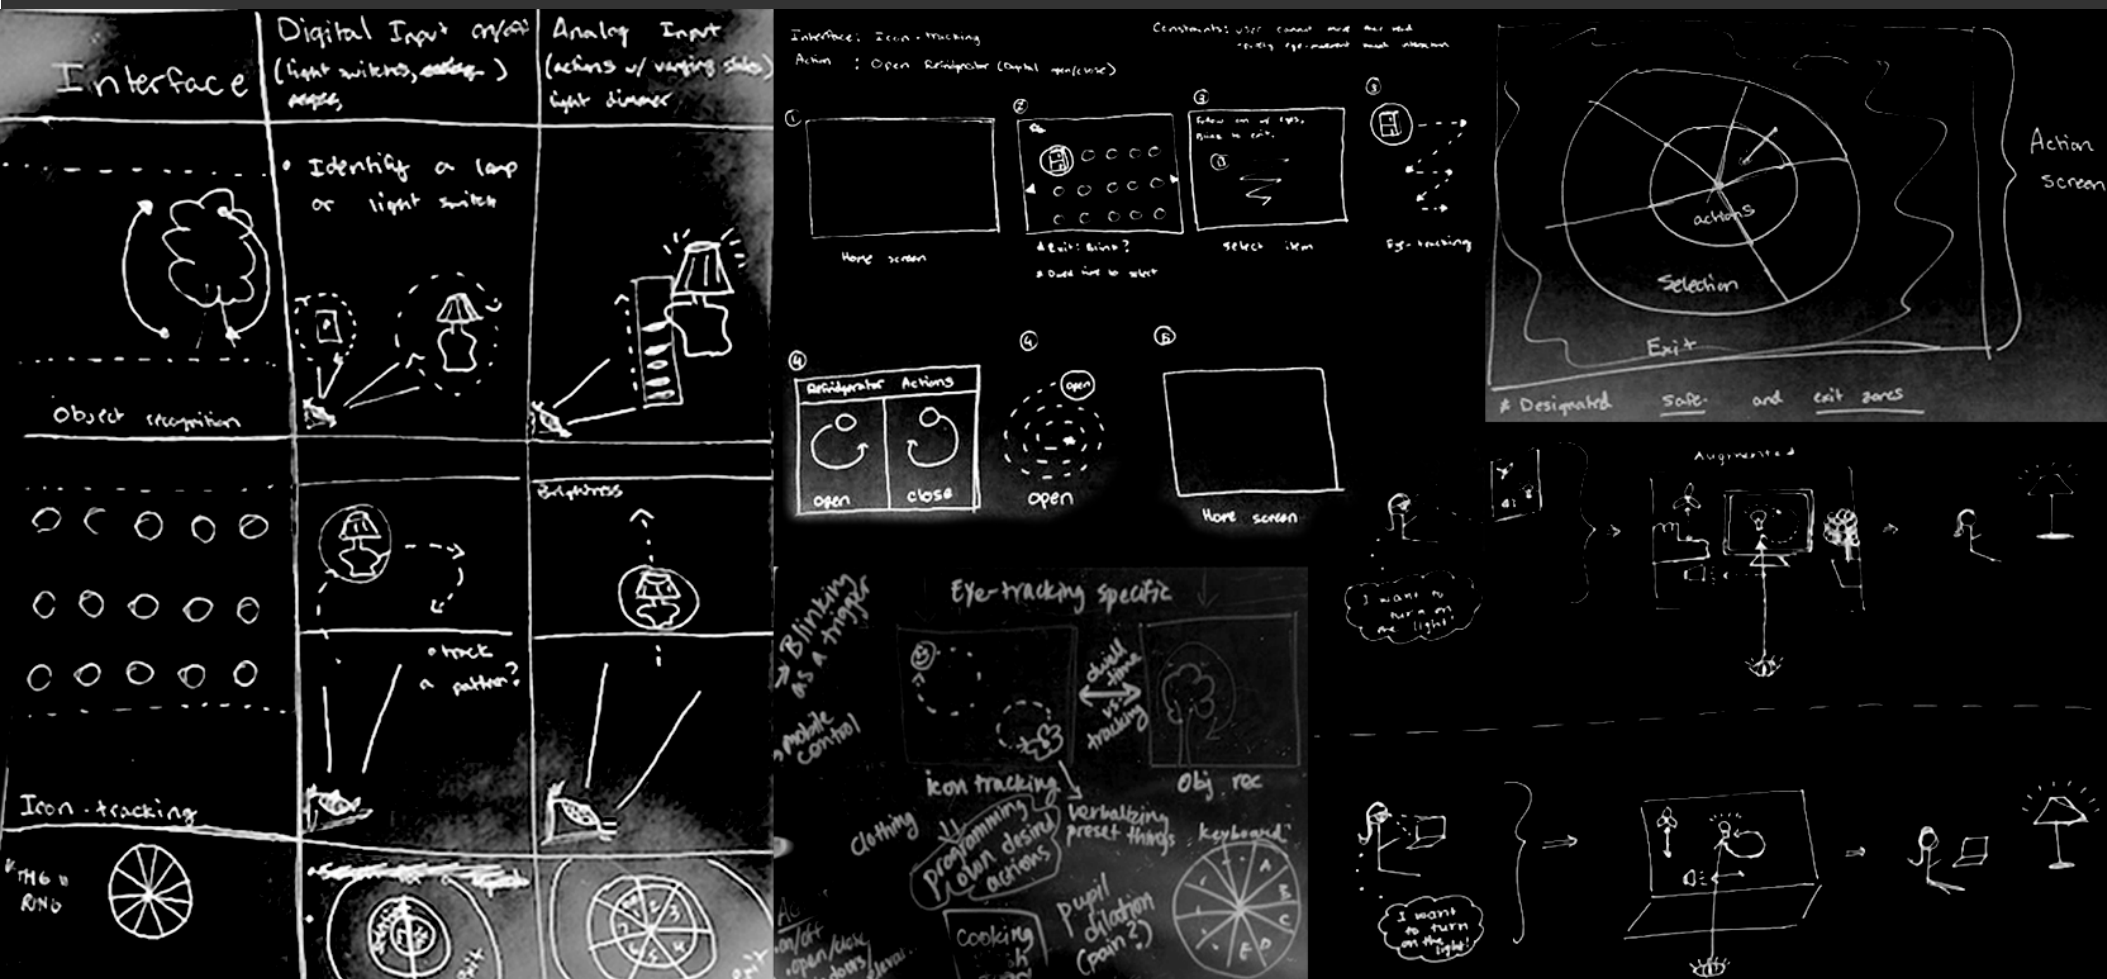 Interface
Digital Input on/off
(light switches,
Analog Input
(actions w/ varying states)
light dimmer
• Identify a lamp
or light switch
Object recognition
Brightness
• track
a pattern?
Icon-tracking
* THE "
RING
exit
1 2 3
4
Interface: Icon-tracking
Action : Open Refridgerator (Digital open/close)
Constraints: user cannot move their head
1
Home screen
2
* Exit: Blink?
* Dwell time to select
3
Follow icon w/ eyes,
Blink to exit.
Select item
3
Eye-tracking
4
Refridgerator Actions
open
close
4
open
open
5
Home screen
actions
Selection
Exit
Action
screen
* Designated safe and exit zones
→ Blinking
as a trigger
→ mobile
control
Eye-tracking specific
dwell
time
vs.
tracking
icon tracking
Obj. rec
Clothing
programming
own desired
actions
verbalizing
preset things
keyboard
A
B
C
D
E
pupil
dilation
(pain?)
Cooking
on/off
• open/close
doors/
Augmented
I want to
turn on
the light!
I want
to turn
on the
light!